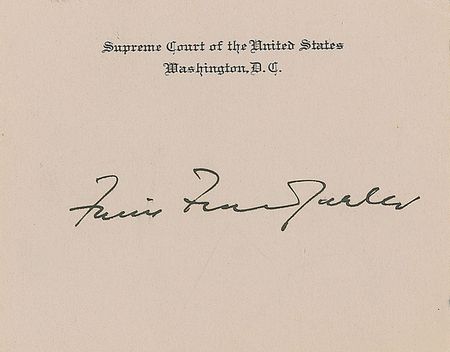 Supreme Court of the United States
Washington, D. C.
Felix Frankfurter